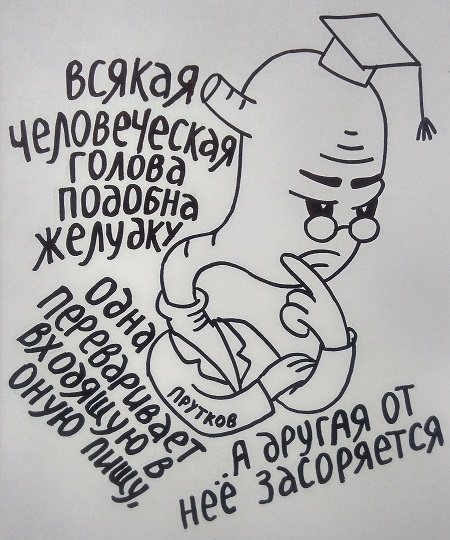 ВСЯКАЯ
ЧЕЛОВЕЧЕСКАЯ
ГОЛОВА
ПОДОБНА
ЖЕЛУДКУ
ОДНА
ПЕРЕВАРИВАЕТ
ВХОДЯЩУЮ В
ОНУЮ ПИЩУ,
А ДРУГАЯ ОТ
НЕЁ ЗАСОРЯЕТСЯ
ПРУТКОВ